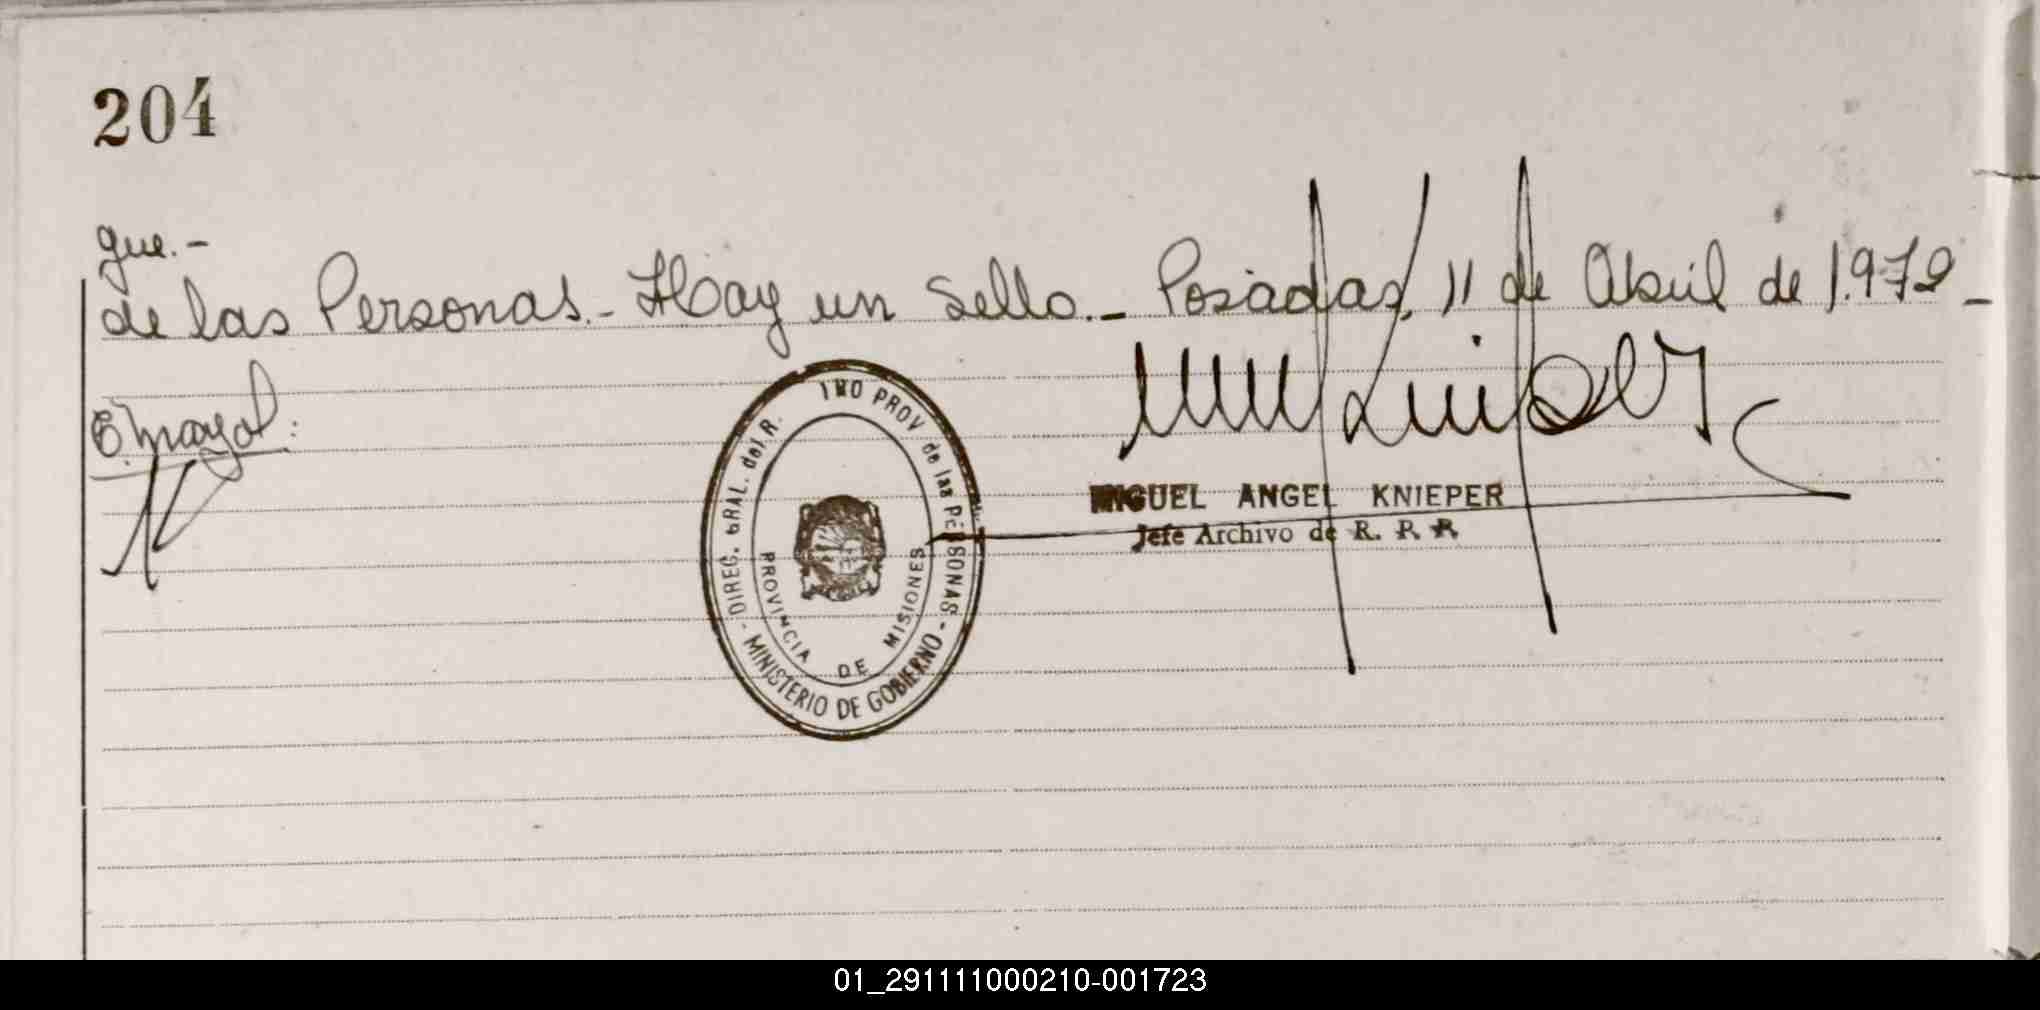 204
gue.-
de las Personas.- Hay un Sello.- Posadas, 11 de Abril de 1.972-
DIREC. GRAL. del R. PROV de las PERSONAS - MINISTERIO DE GOBIERNO -
PROVINCIA DE MISIONES
MIGUEL ANGEL KNIEPER
Jefe Archivo de R. P. P.
01_291111000210-001723